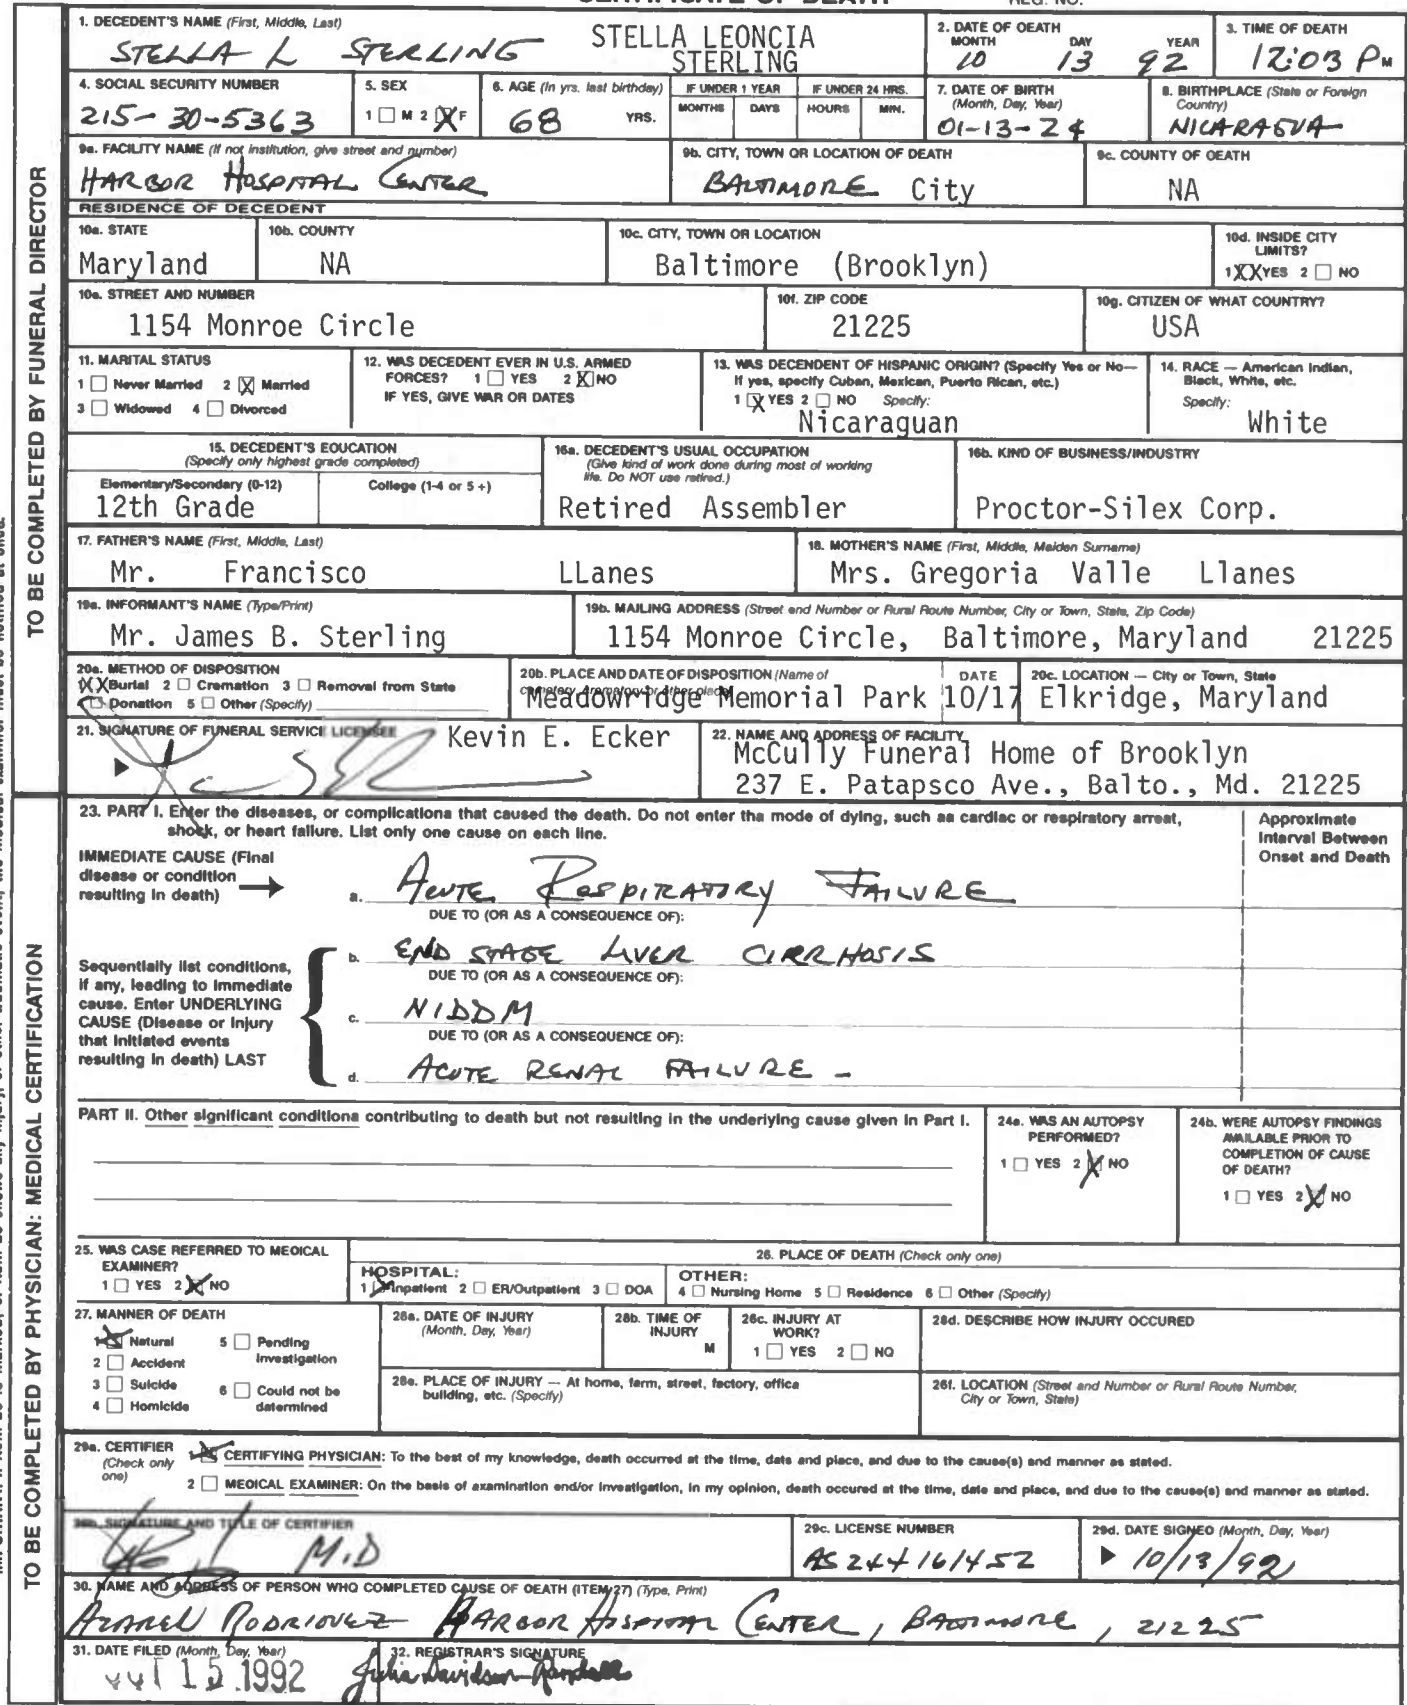 CERTIFICATE OF DEATH REG. NO.
1. DECEDENT'S NAME (First, Middle, Last)
STELLA L STERLING
STELLA LEONCIA
STERLING
2. DATE OF OEATH
MONTH DAY YEAR
10 13 92
3. TIME OF DEATH
12:03 PM
4. SOCIAL SECURITY NUMBER
215-30-5363
5. SEX
1 M 2 X F
6. AGE (In yrs. last birthday)
68 YRS.
IF UNDER 1 YEAR
MONTHS DAYS
IF UNDER 24 HRS.
HOURS MIN.
7. DATE OF BIRTH
(Month, Day, Year)
01-13-24
8. BIRTHPLACE (State or Foreign
Country)
NICARAGUA
9a. FACILITY NAME (If not institution, give street and number)
HARBOR HOSPITAL CENTER
9b. CITY, TOWN OR LOCATION OF DEATH
BALTIMORE City
9c. COUNTY OF OEATH
NA
RESIDENCE OF DECEDENT
10a. STATE
Maryland
10b. COUNTY
NA
10c. CITY, TOWN OR LOCATION
Baltimore (Brooklyn)
10d. INSIDE CITY
LIMITS?
1 XX YES 2 NO
10e. STREET AND NUMBER
1154 Monroe Circle
10f. ZIP CODE
21225
10g. CITIZEN OF WHAT COUNTRY?
USA
11. MARITAL STATUS
1 Never Married 2 X Married
3 Widowed 4 Divorced
12. WAS DECEDENT EVER IN U.S. ARMED
FORCES? 1 YES 2 X NO
IF YES, GIVE WAR OR DATES
13. WAS DECENDENT OF HISPANIC ORIGIN? (Specify Yes or No—
If yes, specify Cuban, Mexican, Puerto Rican, etc.)
1 X YES 2 NO Specify:
Nicaraguan
14. RACE — American Indian,
Black, White, etc.
Specify:
White
15. DECEDENT'S EOUCATION
(Specify only highest grade completed)
Elementary/Secondary (0-12) College (1-4 or 5+)
12th Grade
16a. DECEDENT'S USUAL OCCUPATION
(Give kind of work done during most of working
life. Do NOT use retired.)
Retired Assembler
16b. KIND OF BUSINESS/INDUSTRY
Proctor-Silex Corp.
17. FATHER'S NAME (First, Middle, Last)
Mr. Francisco LLanes
18. MOTHER'S NAME (First, Middle, Maiden Surname)
Mrs. Gregoria Valle Llanes
19a. INFORMANT'S NAME (Type/Print)
Mr. James B. Sterling
19b. MAILING ADDRESS (Street and Number or Rural Route Number, City or Town, State, Zip Code)
1154 Monroe Circle, Baltimore, Maryland 21225
20a. METHOD OF DISPOSITION
XX Burial 2 Cremation 3 Removal from State
Donation 5 Other (Specify)
20b. PLACE AND DATE OF DISPOSITION (Name of
cemetery, crematory or other place)
Meadowridge Memorial Park
DATE
10/17
20c. LOCATION — City or Town, State
Elkridge, Maryland
21. SIGNATURE OF FUNERAL SERVICE LICENSEE
Kevin E. Ecker
22. NAME AND ADDRESS OF FACILITY
McCully Funeral Home of Brooklyn
237 E. Patapsco Ave., Balto., Md. 21225
TO BE COMPLETED BY FUNERAL DIRECTOR
23. PART I. Enter the diseases, or complications that caused the death. Do not enter the mode of dying, such as cardiac or respiratory arrest,
shock, or heart failure. List only one cause on each line.
Approximate
Interval Between
Onset and Death
IMMEDIATE CAUSE (Final
disease or condition
resulting in death)
a. ACUTE RESPIRATORY FAILURE
DUE TO (OR AS A CONSEQUENCE OF):
b. END STAGE LIVER CIRRHOSIS
DUE TO (OR AS A CONSEQUENCE OF):
c. NIDDM
DUE TO (OR AS A CONSEQUENCE OF):
d. ACUTE RENAL FAILURE -
Sequentially list conditions,
if any, leading to immediate
cause. Enter UNDERLYING
CAUSE (Disease or Injury
that initiated events
resulting in death) LAST
PART II. Other significant conditions contributing to death but not resulting in the underlying cause given in Part I.
24a. WAS AN AUTOPSY
PERFORMED?
1 YES 2 X NO
24b. WERE AUTOPSY FINDINGS
AVAILABLE PRIOR TO
COMPLETION OF CAUSE
OF DEATH?
1 YES 2 X NO
25. WAS CASE REFERRED TO MEOICAL
EXAMINER?
1 YES 2 X NO
26. PLACE OF DEATH (Check only one)
HOSPITAL:
1 X Inpatient 2 ER/Outpatient 3 DOA
OTHER:
4 Nursing Home 5 Residence 6 Other (Specify)
27. MANNER OF DEATH
1 X Natural 5 Pending
Investigation
2 Accident
3 Suicide 6 Could not be
determined
4 Homicide
28a. DATE OF INJURY
(Month, Day, Year)
28b. TIME OF
INJURY
M
28c. INJURY AT
WORK?
1 YES 2 NO
28d. DESCRIBE HOW INJURY OCCURED
28e. PLACE OF INJURY — At home, farm, street, factory, office
building, etc. (Specify)
28f. LOCATION (Street and Number or Rural Route Number,
City or Town, State)
29a. CERTIFIER
(Check only
one)
X CERTIFYING PHYSICIAN: To the best of my knowledge, death occurred at the time, date and place, and due to the cause(s) and manner as stated.
2 MEOICAL EXAMINER: On the basis of examination and/or investigation, in my opinion, death occured at the time, date and place, and due to the cause(s) and manner as stated.
29b. SIGNATURE AND TITLE OF CERTIFIER
M.D
29c. LICENSE NUMBER
AS244161452
29d. DATE SIGNEO (Month, Day, Year)
10/13/92
30. NAME AND ADDRESS OF PERSON WHO COMPLETED CAUSE OF OEATH (ITEM 27) (Type, Print)
RODRIGUEZ HARBOR HOSPITAL CENTER, BALTIMORE, 21225
31. DATE FILED (Month, Day, Year)
15 1992
32. REGISTRAR'S SIGNATURE
Julia Davidson-Randall
TO BE COMPLETED BY PHYSICIAN: MEDICAL CERTIFICATION